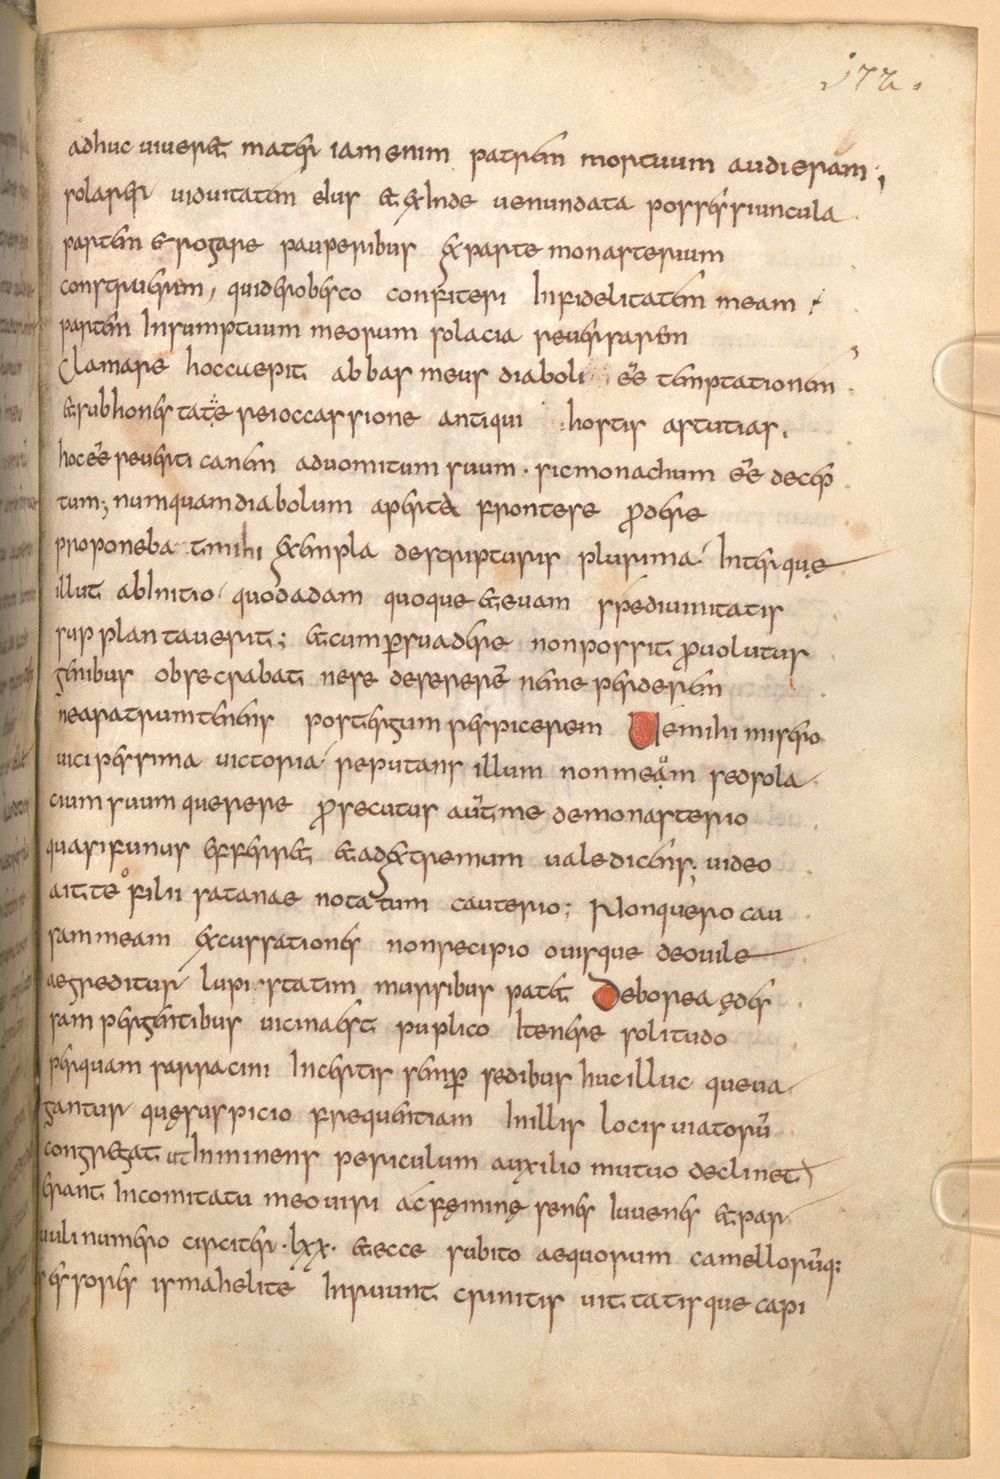 172.
adhuc uiueret mater iam enim patrem mortuum audieram;
solarer uiduitatem eius et exinde uenundata possessiuncula
partem erogare pauperibus ex parte monasterium
construerem, quid erobesco confiteri infidelitatem meam
partem insumptuum meorum solacia reuersarem
Clamare hoc cuepit abbas meus diaboli eē temptationem
et sub honestate rei occassione antiqui hostis astutias.
hoc eē reuerti canem ad uomitum suum. sic monachum eē decep
tum; numquam diabolum aperta frontese ꝓdere
proponeba t mihi exempla descripturis plurima Interque
illut ab Initio quod adam quoque et euam spē diuinitatis
supplantauerit; et cum ꝑsuadere non possit ꝓuolutus
genibus obsecrabat nese desererē neme perderem
nearatrum tenens post tergum respicerem Ue mihi misero
uici pessima uictoria reputans illum non meam sed sola
cium suum querere ꝓsecutus aūt me demonasterio
quasi funus efferret et ad extremum ualedicens; uideo
ait te filii satanae notatum cauterio; Non quero cau
sam meam excussationes non recipio ouis que deouile
aegreditur lupi statim mursibus patet De borea edes
sam pergentibus uicina est puplico Itenere solitudo
per quam sarracini Incertis semꝑ sedibus huc illuc queua
gantur quę suspicio frequentiam Inillis locis uiatorū
congregat ut Inminens periculum auxilio mutuo declinet
erant Incomitatu meo uiri ac feminę senes Iuuenes et par
uuli numero circiter .lxx. et ecce subito aequorum camellorūq:
sessores ismahelite Inruunt crinitis uittatisque capi